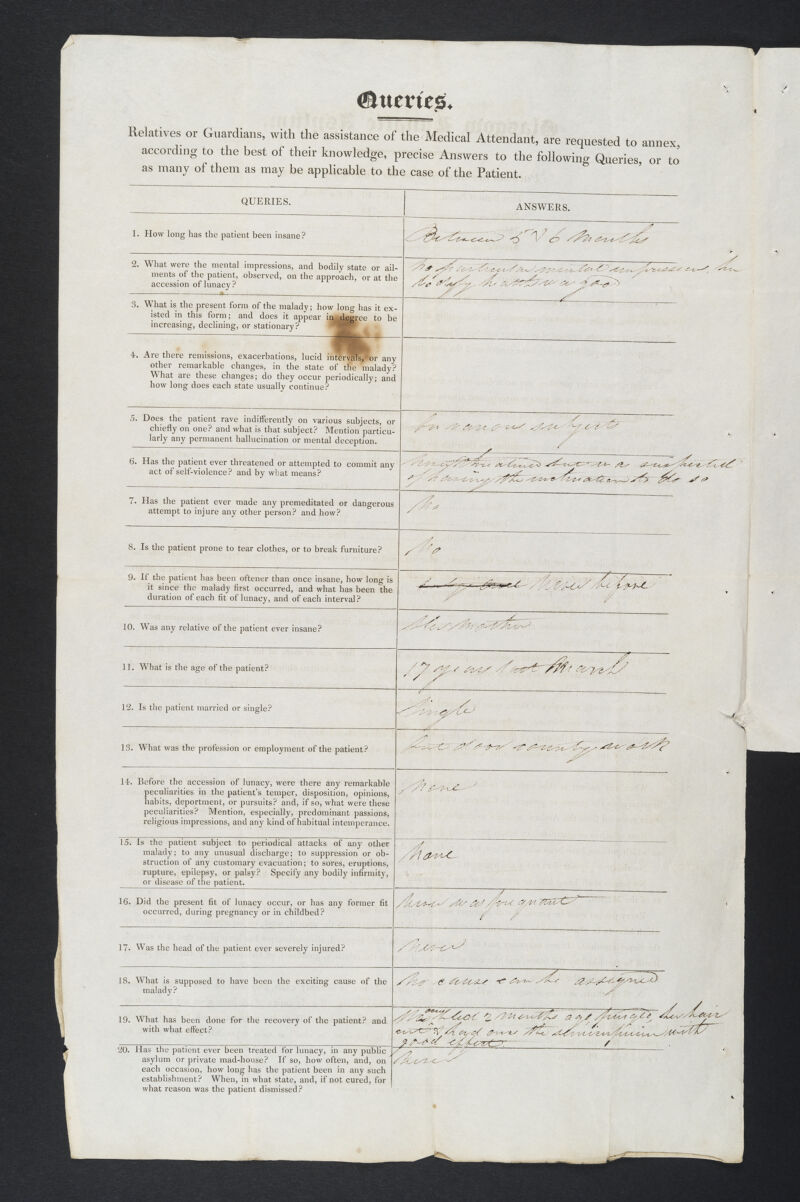 Queries.
Relatives or Guardians, with the assistance of the Medical Attendant, are requested to annex,
according to the best of their knowledge, precise Answers to the following Queries, or to
as many of them as may be applicable to the case of the Patient.
QUERIES.
ANSWERS.
1. How long has the patient been insane?
Between 5 & 6 Months
2. What were the mental impressions, and bodily state or ail-
ments of the patient, observed, on the approach, or at the
accession of lunacy?
No particular mental impression, her
bodily health was good
3. What is the present form of the malady; how long has it ex-
isted in this form; and does it appear in degree to be
increasing, declining, or stationary?
4. Are there remissions, exacerbations, lucid intervals, or any
other remarkable changes, in the state of the malady?
What are these changes; do they occur periodically; and
how long does each state usually continue?
5. Does the patient rave indifferently on various subjects, or
chiefly on one? and what is that subject? Mention particu-
larly any permanent hallucination or mental deception.
On various subjects
6. Has the patient ever threatened or attempted to commit any
act of self-violence? and by what means?
threatened but was suspected
of having the inclination to do so
7. Has the patient ever made any premeditated or dangerous
attempt to injure any other person? and how?
No
8. Is the patient prone to tear clothes, or to break furniture?
No
9. If the patient has been oftener than once insane, how long is
it since the malady first occurred, and what has been the
duration of each fit of lunacy, and of each interval?
Never before
10. Was any relative of the patient ever insane?
Her Mother
11. What is the age of the patient?
17 years last March
12. Is the patient married or single?
Single
13. What was the profession or employment of the patient?
Out door county work
14. Before the accession of lunacy, were there any remarkable
peculiarities in the patient's temper, disposition, opinions,
habits, deportment, or pursuits? and, if so, what were these
peculiarities? Mention, especially, predominant passions,
religious impressions, and any kind of habitual intemperance.
None
15. Is the patient subject to periodical attacks of any other
malady; to any unusual discharge; to suppression or ob-
struction of any customary evacuation; to sores, eruptions,
rupture, epilepsy, or palsy? Specify any bodily infirmity,
or disease of the patient.
None
16. Did the present fit of lunacy occur, or has any former fit
occurred, during pregnancy or in childbed?
Never was pregnant
17. Was the head of the patient ever severely injured?
Never
18. What is supposed to have been the exciting cause of the
malady?
No cause can be assigned
19. What has been done for the recovery of the patient? and
with what effect?
bled 2 months ago, her hair
cut & had on the with
good effect.
20. Has the patient ever been treated for lunacy, in any public
asylum or private mad-house? If so, how often, and, on
each occasion, how long has the patient been in any such
establishment? When, in what state, and, if not cured, for
what reason was the patient dismissed?
Never